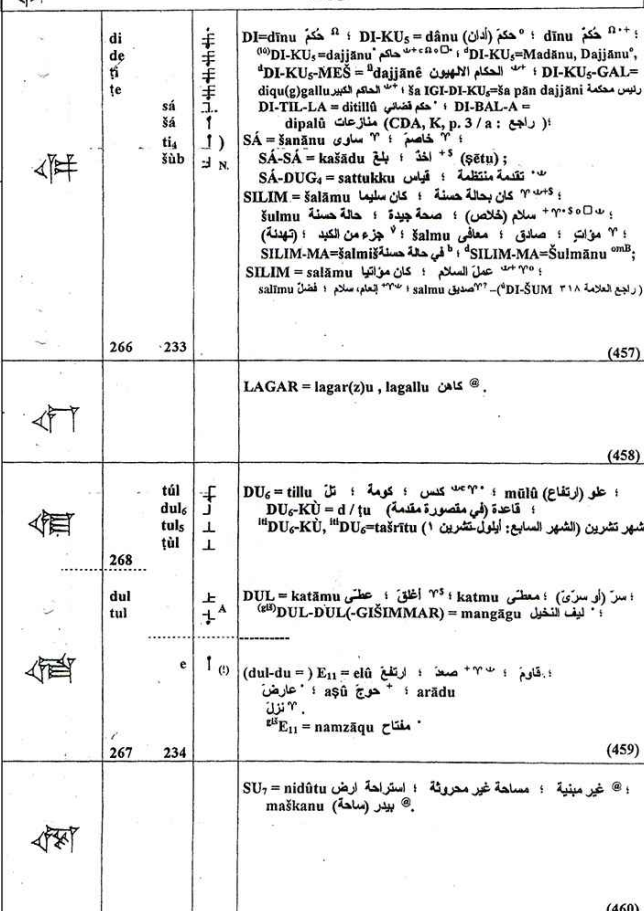 di
de
ṭi
ṭe
sá
šá
ti₄
šùb
266 233
DI=dīnu حُكمٌ ؛ DI-KU₅ = dânu (أدان) حكمَ ؛ dīnu حُكمٌ ؛
DI-KU₅=dajjānu حاكم ؛ ᵈDI-KU₅=Madānu, Dajjānu,
ᵈDI-KU₅-MEŠ = dajjānē الحكام الالهيون ؛ DI-KU₅-GAL=
diqu(g)gallu الحاكم الكبير ؛ ša IGI-DI-KU₅=ša pān dajjāni رئيس محكمة
DI-TIL-LA = ditillû حكم قضائي ؛ DI-BAL-A =
dipalû منازعات (CDA, K, p. 3 / a : راجع )؛
SÁ = šanānu ساوى ؛ خاصمَ ؛
SÁ-SÁ = kašādu بلغَ ؛ اخذَ (ṣētu) ;
SÁ-DUG₄ = sattukku قياس ؛ تقدمة منتظمة
SILIM = šalāmu كان سليما ؛ كان بحالة حسنة ؛
šulmu حالة حسنة ؛ صحة جيدة ؛ سلام (خلاص) ؛
(تهدئة) ؛ جزء من الكبد ؛ šalmu معافى ؛ صادق ؛ مؤاتٍ ؛
SILIM-MA=šalmiš في حالة حسنة ؛ ᵈSILIM-MA=Šulmānu ;
SILIM = salāmu كان مؤاتيا ؛ عملَ السلام ؛
salīmu إنعام، سلام ؛ فضلٌ ؛ salmu صديق –(ᵈDI-ŠUM ٣١٨ راجع العلامة )
(457)
LAGAR = lagar(z)u , lagallu كاهن .
(458)
túl
dul₆
tul₅
ṭùl
268
DU₆ = tillu تلّ ؛ كومة ؛ كدس ؛ mūlû (ارتفاع) علو ؛
DU₆-KÙ = d / ṭu قاعدة (في مقصورة مقدمة) ؛
ⁱᵗⁱDU₆-KÙ, ⁱᵗⁱDU₆=tašrītu (شهر تشرين (الشهر السابع: أيلول-تشرين ١
dul
tul
DUL = katāmu غطّى ؛ أغلقَ ؛ katmu مغطّى ؛ سرّ (أو سرّيّ) ؛
⁽ᵍⁱˢ̌⁾DUL-DUL(-GIŠIMMAR) = mangāgu ليف النخيل ؛
e
(dul-du = ) E₁₁ = elû ارتفعَ ؛ صعدَ ؛ قاومَ ؛
عارضَ ؛ aṣû خرجَ ؛ arādu
نزلَ .
ᵍⁱˢ̌E₁₁ = namzāqu مفتاح
267 234
(459)
SU₇ = nidûtu استراحة ارض ؛ مساحة غير محروثة ؛ غير مبنية ؛
maškanu بيدر (ساحة) .
(460)